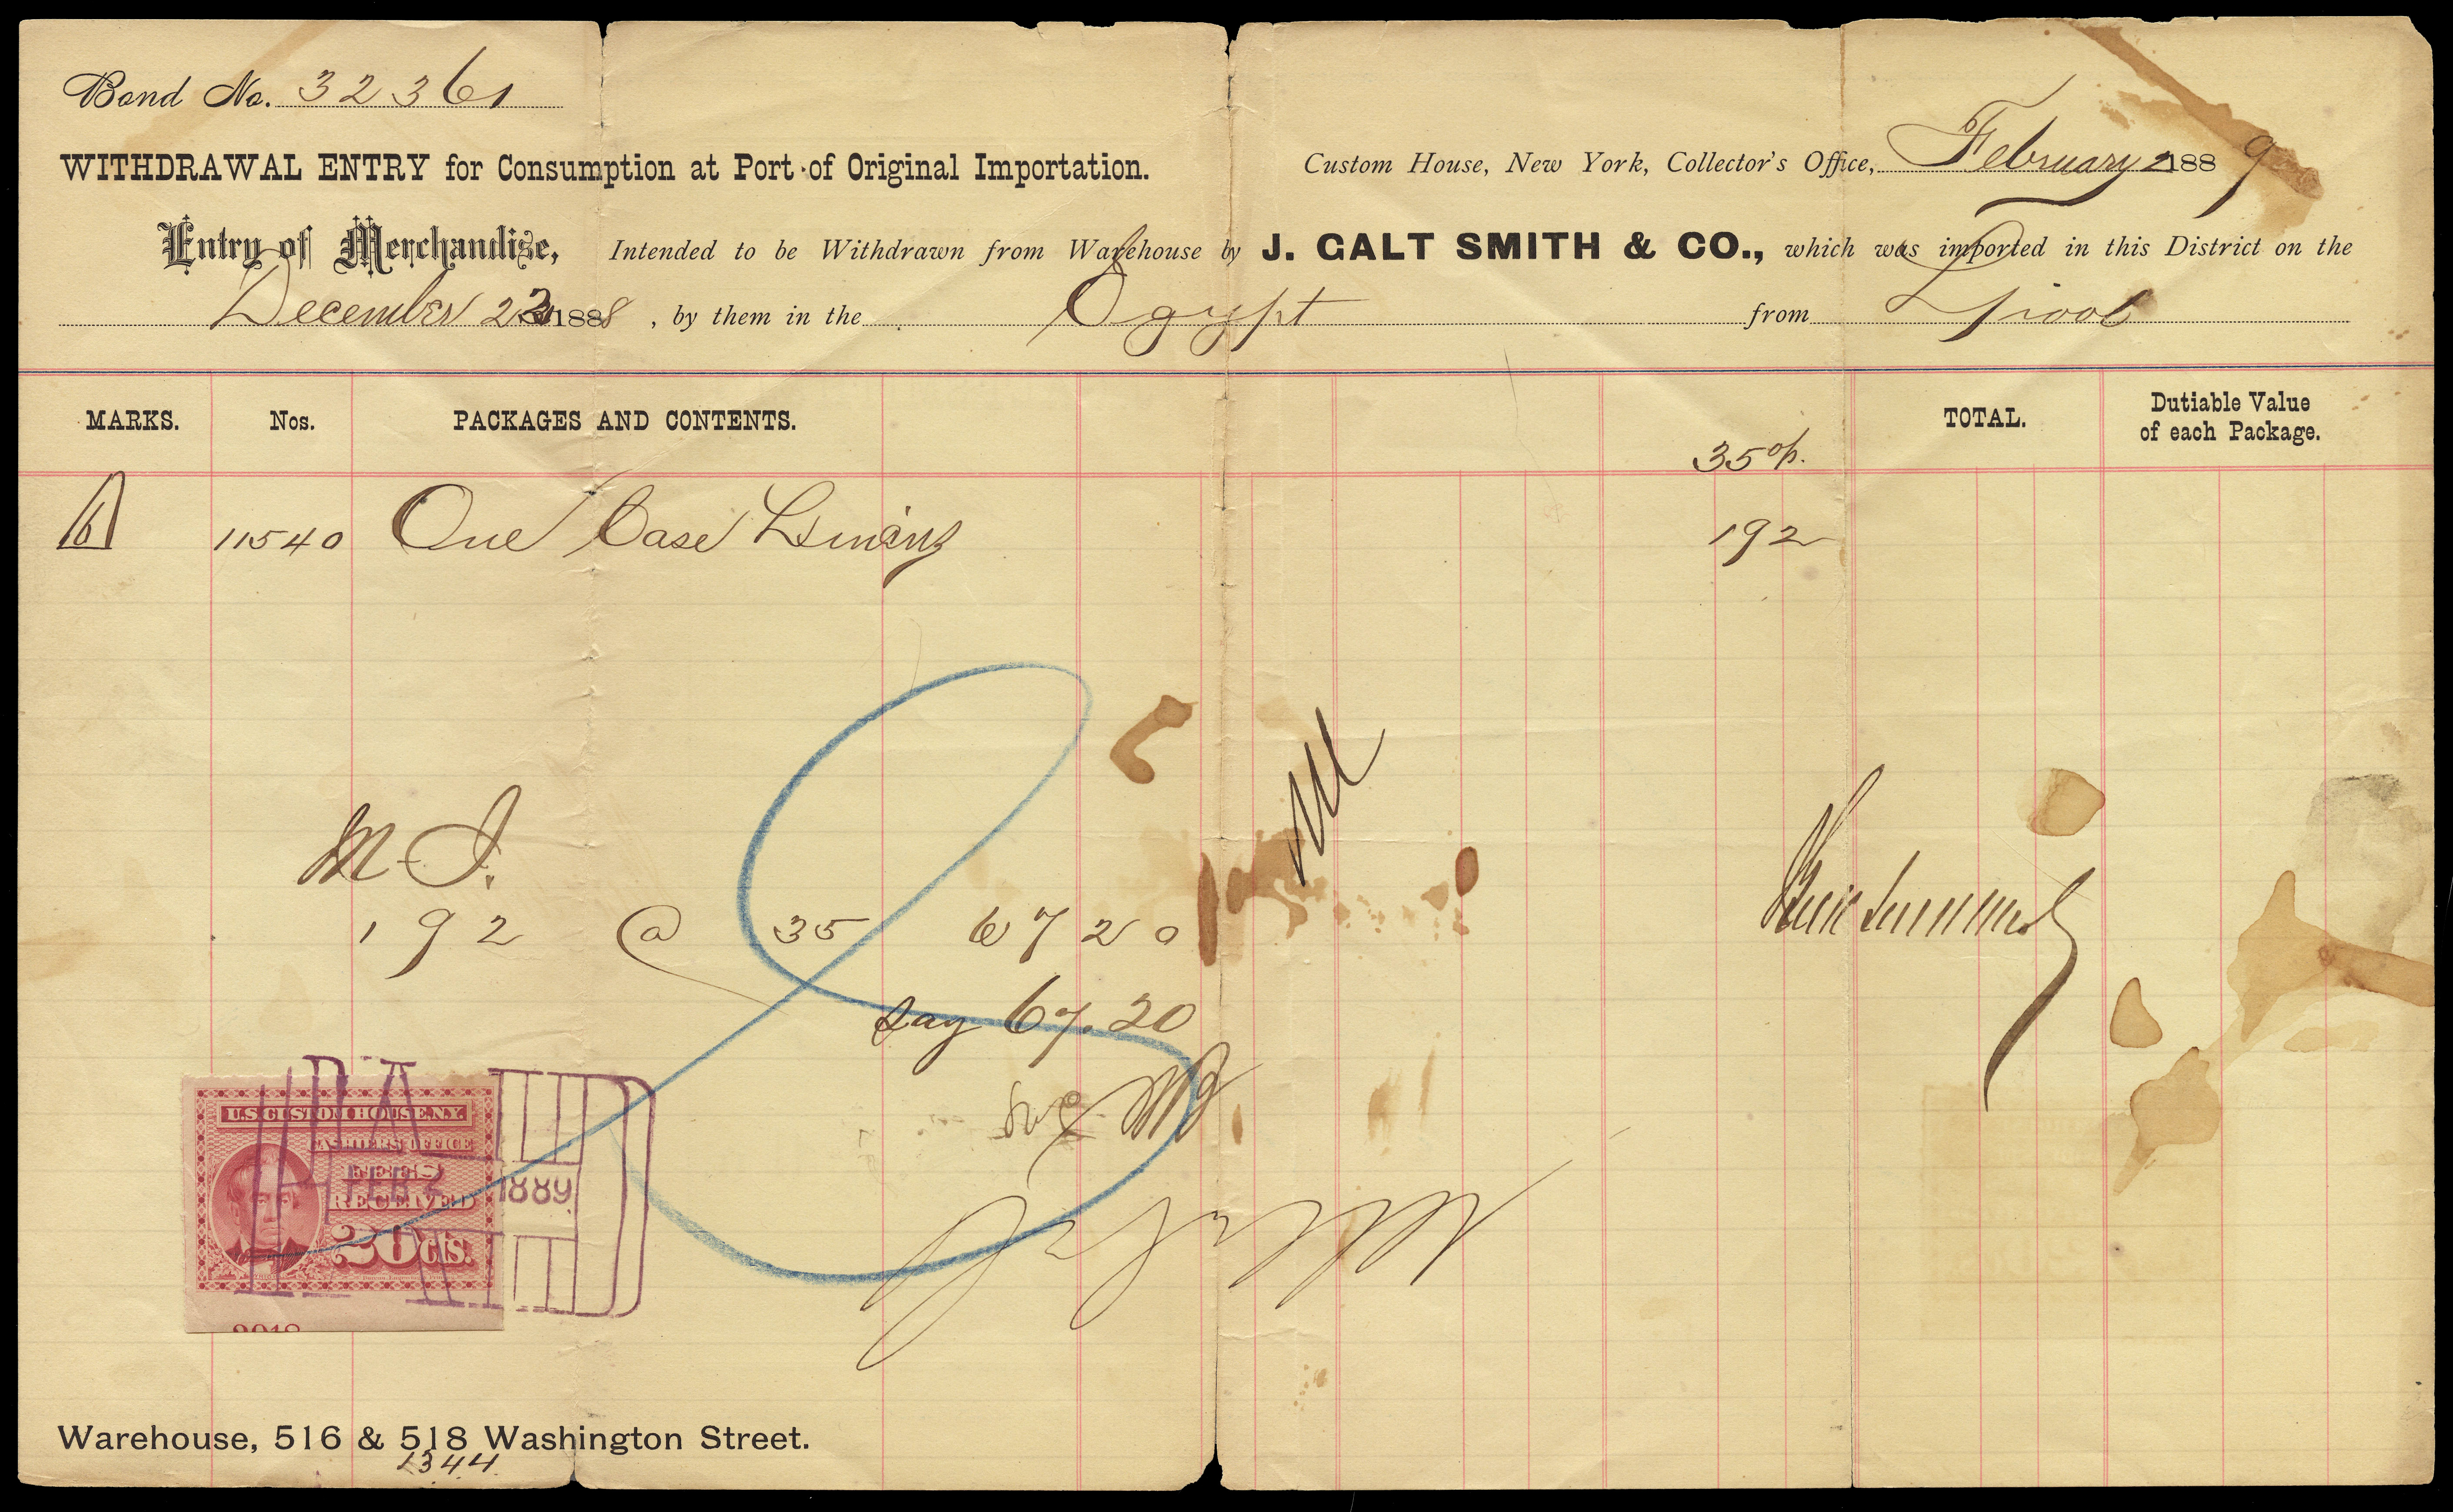 Bond No. 32361
WITHDRAWAL ENTRY for Consumption at Port of Original Importation.
Custom House, New York, Collector's Office, February 2 1889
Entry of Merchandize, Intended to be Withdrawn from Warehouse by J. GALT SMITH & CO., which was imported in this District on the
December 22 1888, by them in the Egypt from L'pool
MARKS. Nos. PACKAGES AND CONTENTS. TOTAL. Dutiable Value of each Package.
35 %.
11540 One Case Linens 192
192 @ 35 6720
Say 67.20
U.S. CUSTOM HOUSE N.Y.
CASHIER'S OFFICE
FEES
RECEIVED
20 CTS.
FEB 2 1889
Warehouse, 516 & 518 Washington Street.
1344